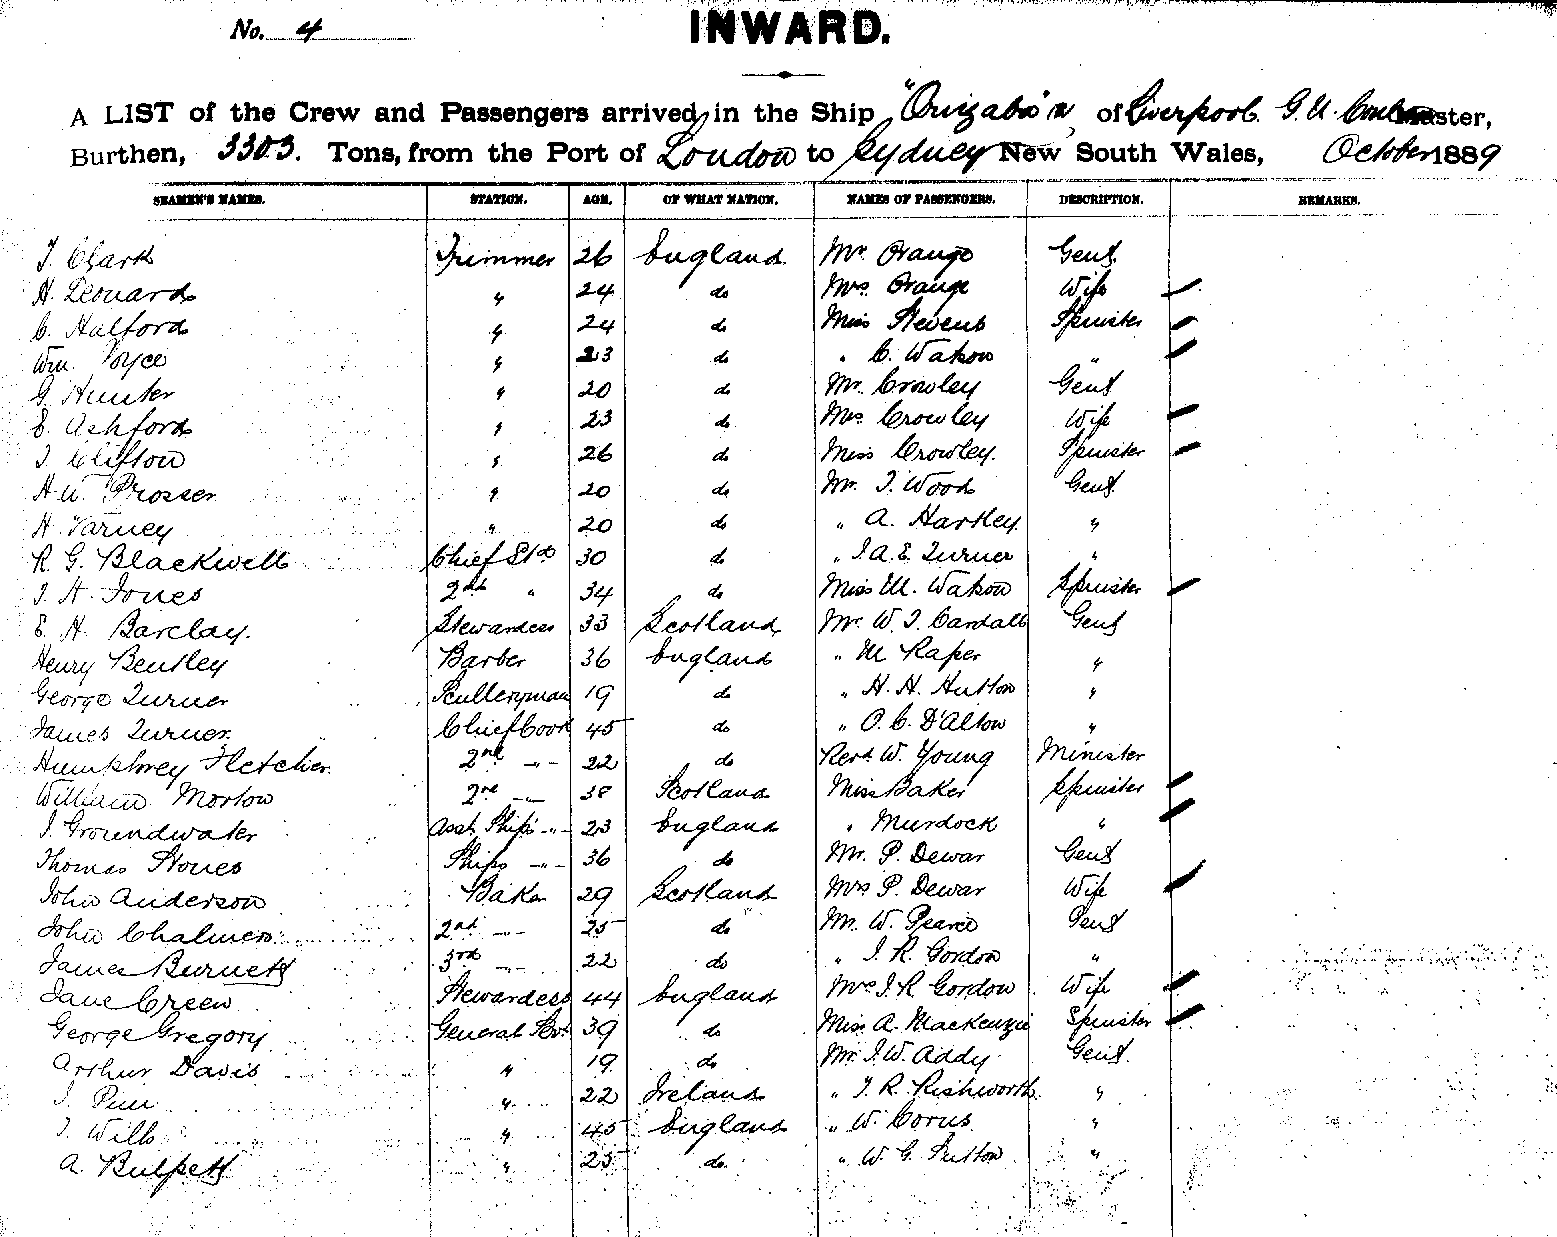 No. 4
INWARD.
A LIST of the Crew and Passengers arrived in the Ship "Orizaba" of Liverpool. G. N. Master,
Burthen, 3303. Tons, from the Port of London to Sydney New South Wales, October 1889
SEAMEN'S NAMES. STATION. AGE. OF WHAT NATION. NAMES OF PASSENGERS. DESCRIPTION. REMARKS.
T. Clark Trimmer 26 England Mr. Orange Gent
H. Leonard " 24 do Mrs. Orange Wife
C. Halford " 24 do Miss Stevens Spinster
Wm. Joyce " 23 do " C. Watson "
G. Hunter " 20 do Mr. Crowley Gent
E. Ashford " 23 do Mrs Crowley Wife
J. Clifton " 26 do Miss Crowley. Spinster
H. W. Prosser " 20 do Mr. J. Wood Gent
H. Varney " 20 do " A. Hartley "
R. G. Blackwell Chief Std 30 do " J. A. E. Turner "
J. H. Jones 2nd " 34 do Miss M. Watson Spinster
E. H. Barclay. Stewardess 33 Scotland Mr. W. J. Cardall Gent
Henry Bentley Barber 36 England " M Raper "
George Turner Sculleryman 19 do " H. H. Hutton "
James Turner. Chief Cook 45 do " O. C. D'Alton "
Humphrey Fletcher 2nd -"- 22 do Revd. W. Young Minister
William Morton 2nd -"- 38 Scotland Miss Baker Spinster
J. Groundwater Asst. Ships -"- 23 England " Murdock "
Thomas Stones Ships -"- 36 do Mr. P. Dewar Gent
John Anderson Baker 29 Scotland Mrs P. Dewar Wife
John Chalmers 2nd -"- 25 do Mr. W. Pearce Gent
James Burnett 3rd -"- 22 do " J. R. Gordon "
Jane Green Stewardess 44 England Mrs J. R Gordon Wife
George Gregory General Svt 39 do Miss A. Mackenzie Spinster
Arthur Davis " 19 do Mr. J. W. Addy Gent
J. " 22 Ireland " T. R. Rishworth "
J. Wills " 45 England " W. Corus "
A. Bulpett " 25 do " W. G. Sutton "